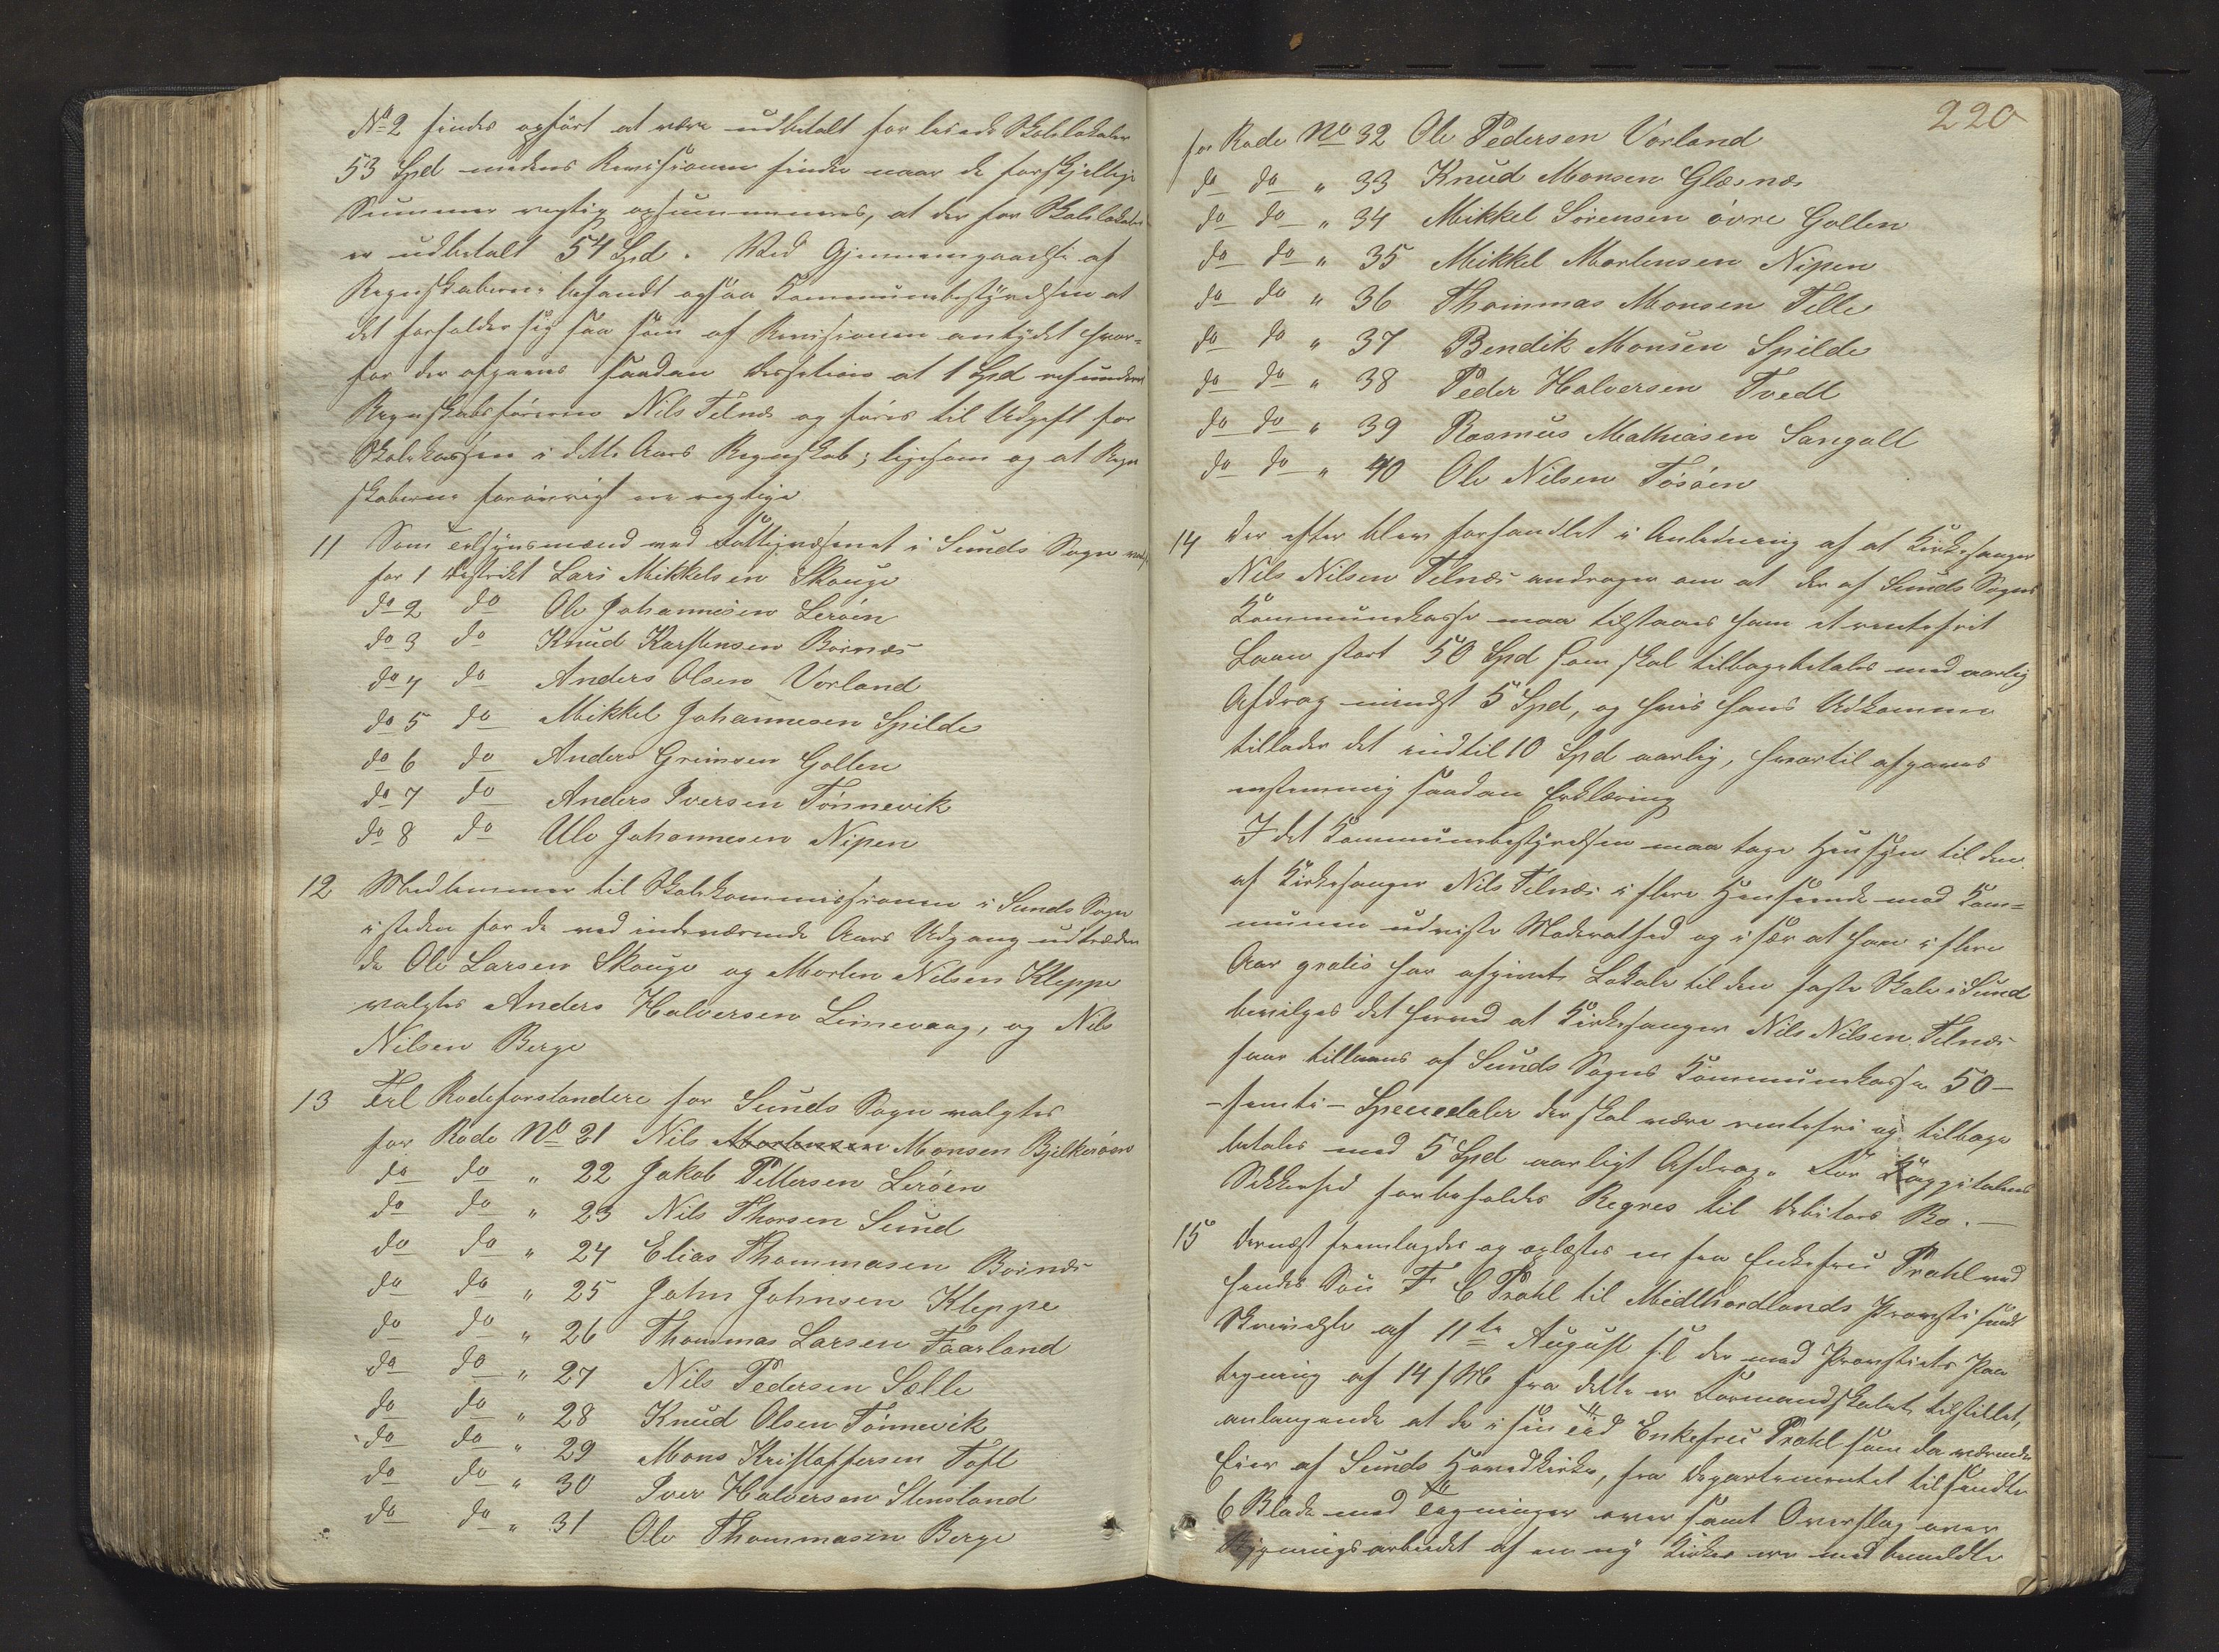 No 2 findes opført at være udbetalt for leiede Skolelokaler
53 Spd medens Revisionen finder naar de forskjellige
Summer rigtig opsummeres, at der for Skolelokaler
er udbetalt 54 Spd. Ved Gjennemgaaelse af
Regnskaberne befandt ogsaa Kommunebestyrelsen at
det forholder sig saa som af Revisionen antydet hvor-
for der afgaves saadan Decision at 1 Spd refunderes
Regnskabsføreren Nils Telnæs og føres til Udgift for
Skolekassen i dette Aars Regnskab; ligesom og at Regn
skaberne forøvrigt ere rigtige
11 Som Tilsynsmænd ved Fattigvæsenet i Sunds Sogn
for 1 Distrikt Lars Mikkelsen Skouge
do 2 do Ole Johannesen Lerøen
do 3 do Knud Karstensen Bornæs
do 4 do Anders Olsen Vorland
do 5 do Mikkel Johannesen Spilde
do 6 do Anders Grimsen Gollen
do 7 do Anders Iversen Tønnevik
do 8 do Ole Johannesen Nipen
12 Medlemmer til Skolekommissionen i Sunds Sogn
isteden for de ved indeværende Aars Udgang udtræden
de Ole Larsen Skouge og Morten Nilsen Kleppe
valgtes Anders Halversen Limevaag, og Nils
Nilsen Berge
13 Til Rodeforstandere for Sunds Sogn valgtes
for Rode No 21 Nils Mortensen Monsen Bjelkerøen
do do " 22 Jakob Pettersen Lerøen
do do " 23 Nils Thorsen Sund
do do " 24 Elias Thommasen Bornæs
do do " 25 John Johnsen Kleppe
do do " 26 Thommas Larsen Faarland
do do " 27 Nils Pedersen Sælle
do do " 28 Knud Olsen Tønnevik
do do " 29 Mons Kristoffersen Toft
do do " 30 Iver Halversen Stensland
do do " 31 Ole Thommasen Berge
220
for Rode No 32 Ole Pedersen Vorland
do do " 33 Knud Monsen Glæsnæs
do do " 34 Mikkel Sørensen øvre Gollen
do do " 35 Mikkel Mortensen Nipen
do do " 36 Thommas Monsen Telle
do do " 37 Bendik Monsen Spilde
do do " 38 Peder Halversen Tvedt
do do " 39 Rasmus Mathiasen Sangolt
do do " 40 Ole Nilsen Tøsøen
14 Der efter blev forhandlet i Anledning af at Kirkesanger
Nils Nilsen Telnæs andrager om at der af Sunds Sogns
Kommunekasse maa tilstaaes ham et rentefrit
Laan stort 50 Spd som skal tilbagebetales med aarlig
Afdrag mindst 5 Spd, og hvis hans Udkomme
tillader det indtil 10 Spd aarlig, hvortil afgaves
enstemmig saadan Erklæring
I det Kommunebestyrelsen maa tage Hensyn til den
af Kirkesanger Nils Telnæs i flere Henseende mod Kom-
munen udviste Moderathed og i sær at han i flere
Aar gratis har afgivet Lokale til den faste Skole i Sund
bevilges det herved at Kirkesanger Nils Nilsen Telnæs
faar tillaans af Sunds Sogns Kommunekasse 50 -
- femti - Speciedaler der skal være rentefri og tilbage
betales med 5 Spd aarligt Afdrag. For Kappitalens
Sikkerhed forbeholdes Regres til Debitors Bo. -
15 Dernæst fremlagdes og oplæstes en fra Enkefru Prahl ved
hendes Søn F C Prahl til Midthordlands Provsti sendt
Skrivelse af 11te August f.l der med Provstiets Paa
tegning af 14/ fra dette er Formandskabet tilstillet,
anlangende at de i sin Tid Enkefru Prahl som da værende
Eier af Sunds Hovedkirke, fra Departementet tilsendte
6 Blade med Tegninger over samt Overslag over
Bygningsarbeidet af en ny Kirke ere med bemeldte